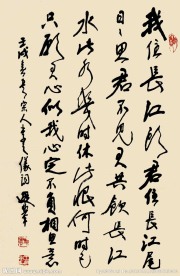 我住長江頭君住長江尾
日日思君不見君共飲長江
水此水幾時休此恨何時已
只願君心似我心定不負相思意
宋人李之儀詞